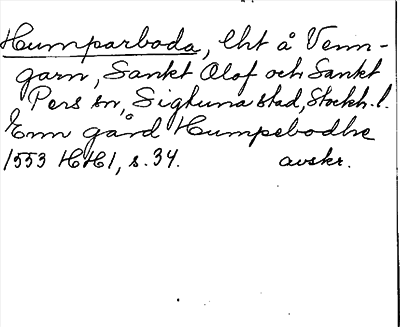 Humparboda, lht å Venn-
garn, Sankt Olof och Sankt
Pers sn, Sigtuna stad, Stockh. l.
Enn gård Humpebodhe
1553 HH1, s. 34. avskr.